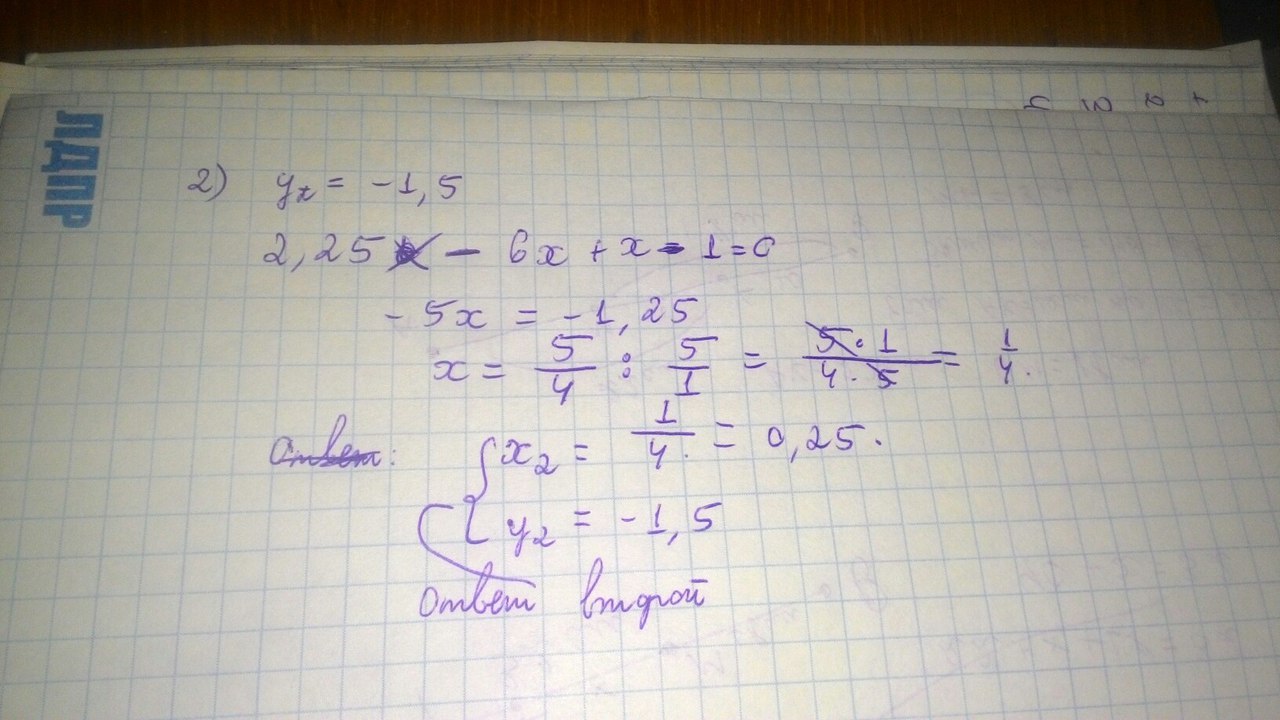 ЛДПР
2) y₂ = -1,5
2,25 - 6x + x - 1 = 0
- 5x = -1,25
x = 5/4 : 5/1 = 5·1/4·5 = 1/4.
Ответ: { x₂ = 1/4 = 0,25.
y₂ = -1,5
Ответ второй